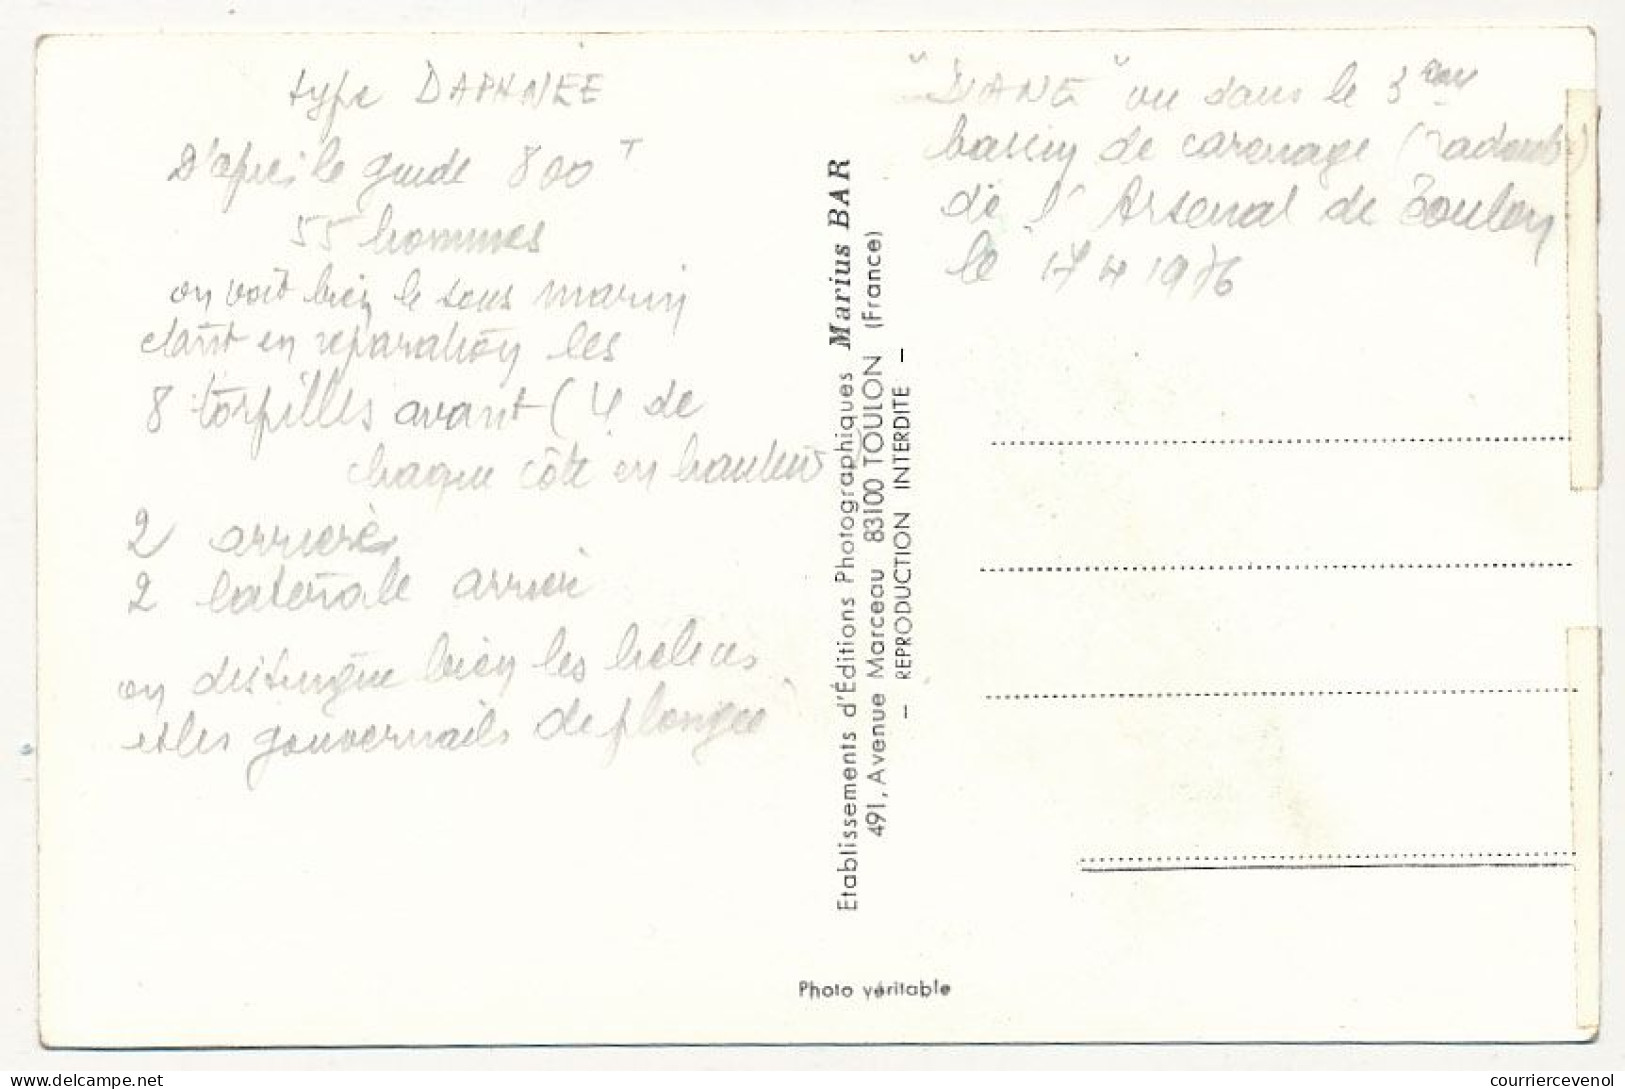 type DAPHNEE
D'après le guide 800 T
55 hommes
on voit bien le sous marin
etant en reparation les
8 torpilles avant (4 de
chaque côté en hauteur
2 arrière
2 laterale arrier
on distingue bien les helices
et les gouvernails de plongée
Etablissements d'Éditions Photographiques Marius BAR
491, Avenue Marceau 83100 TOULON (France)
— REPRODUCTION INTERDITE —
Photo véritable
"DIANE" vu dans le 3
bassin de carenage
de l'Arsenal de Toulon
le 17 4 1976
courriercevenol